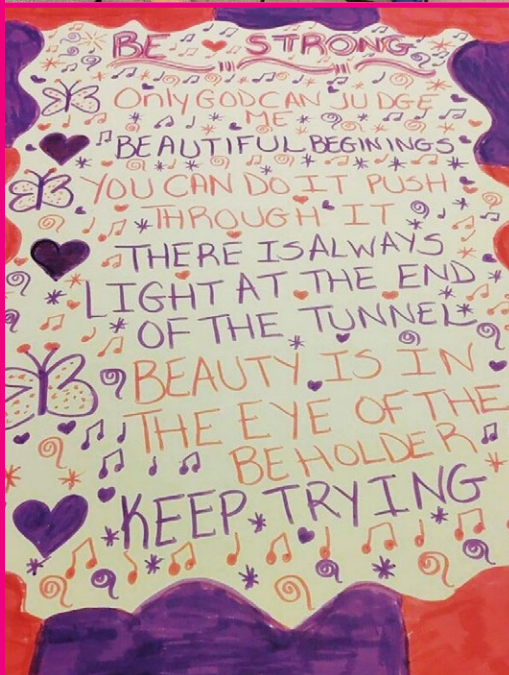 BE STRONG
Only GOD CAN JUDGE
ME
BEAUTIFUL BEGININGS
YOU CAN DO IT PUSH
THROUGH IT
THERE IS ALWAYS
LIGHT AT THE END
OF THE TUNNEL
BEAUTY IS IN
THE EYE OF THE
BEHOLDER
KEEP TRYING